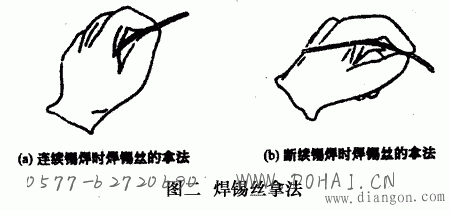 (a) 连续锡焊时焊锡丝的拿法
(b) 断续锡焊时焊锡丝的拿法
0577-62720680 WWW.DOHAI.CN
图二 焊锡丝拿法
www.diangon.com